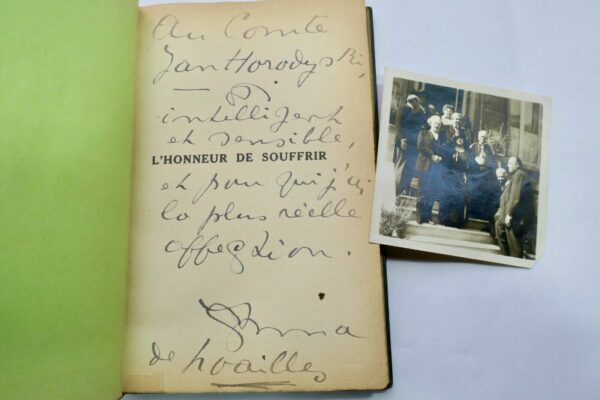 Au Comte
Jan Horodyski,
— si
intelligent
et sensible,
L'HONNEUR DE SOUFFRIR
et pour qui j'ai
la plus réelle
affection.
Anna
de Noailles